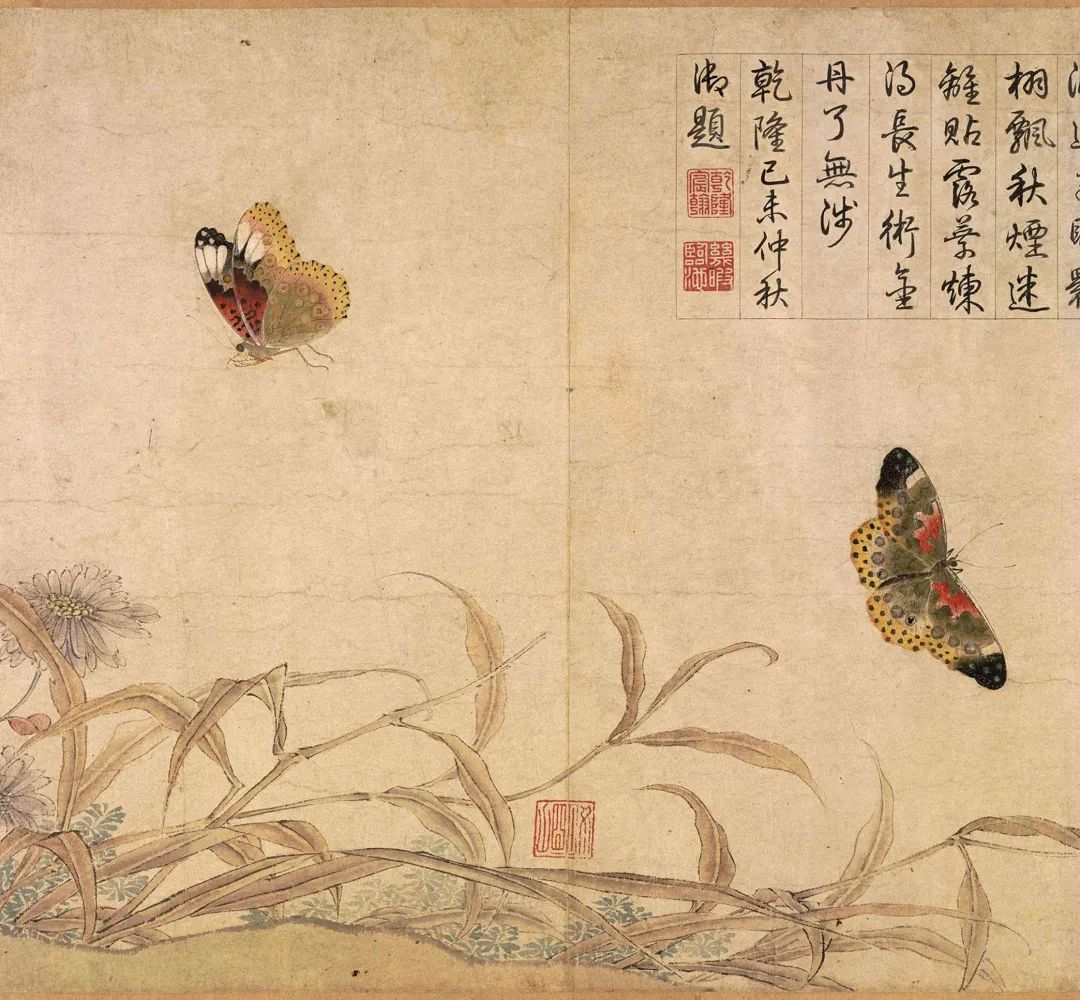 栩飄秋煙迷
離貼露葉煉
得長生術金
丹了無涉
乾隆己未仲秋
御題
乾隆宸翰
幾暇臨池